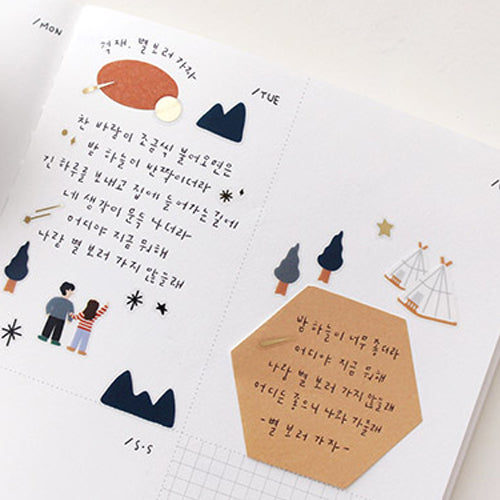 /MON
적재, 별 보러 가자
찬 바람이 조금씩 불어오면은
밤 하늘이 반짝이더라
긴 하루를 보내고 집에 들어가는 길에
네 생각이 문득 나더라
어디야 지금 뭐해
나랑 별 보러 가지 않을래
/S.S
/TUE
밤 하늘이 너무 좋더라
어디야 지금 뭐해
나랑 별 보러 가지 않을래
어디든 좋으니 나와 가줄래
-별 보러 가자-